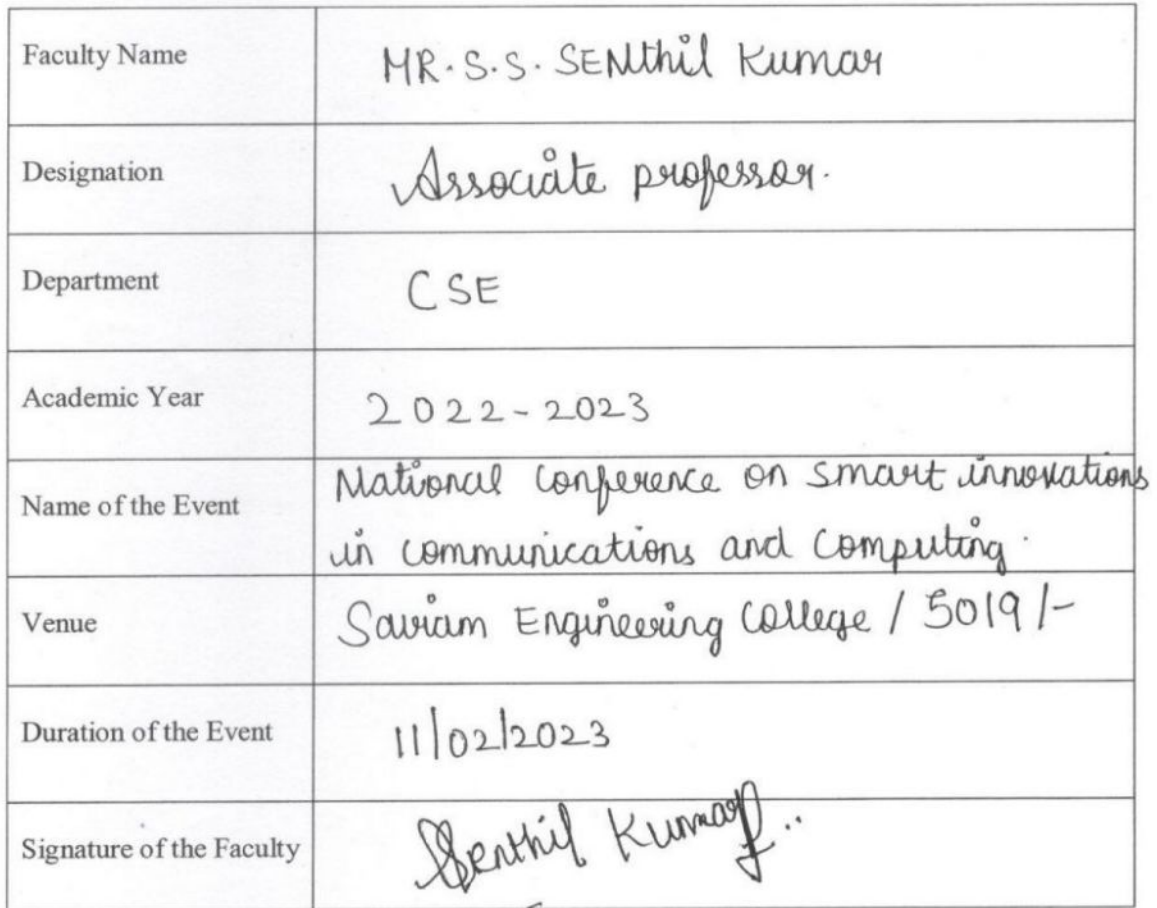 Faculty Name MR. S.S. SENthil Kumar
Designation Associate professor.
Department CSE
Academic Year 2022-2023
Name of the Event National Conference on smart innovations
in communications and Computing.
Venue Sairam Engineering College / 5019/-
Duration of the Event 11/02/2023
Signature of the Faculty Senthil Kumar